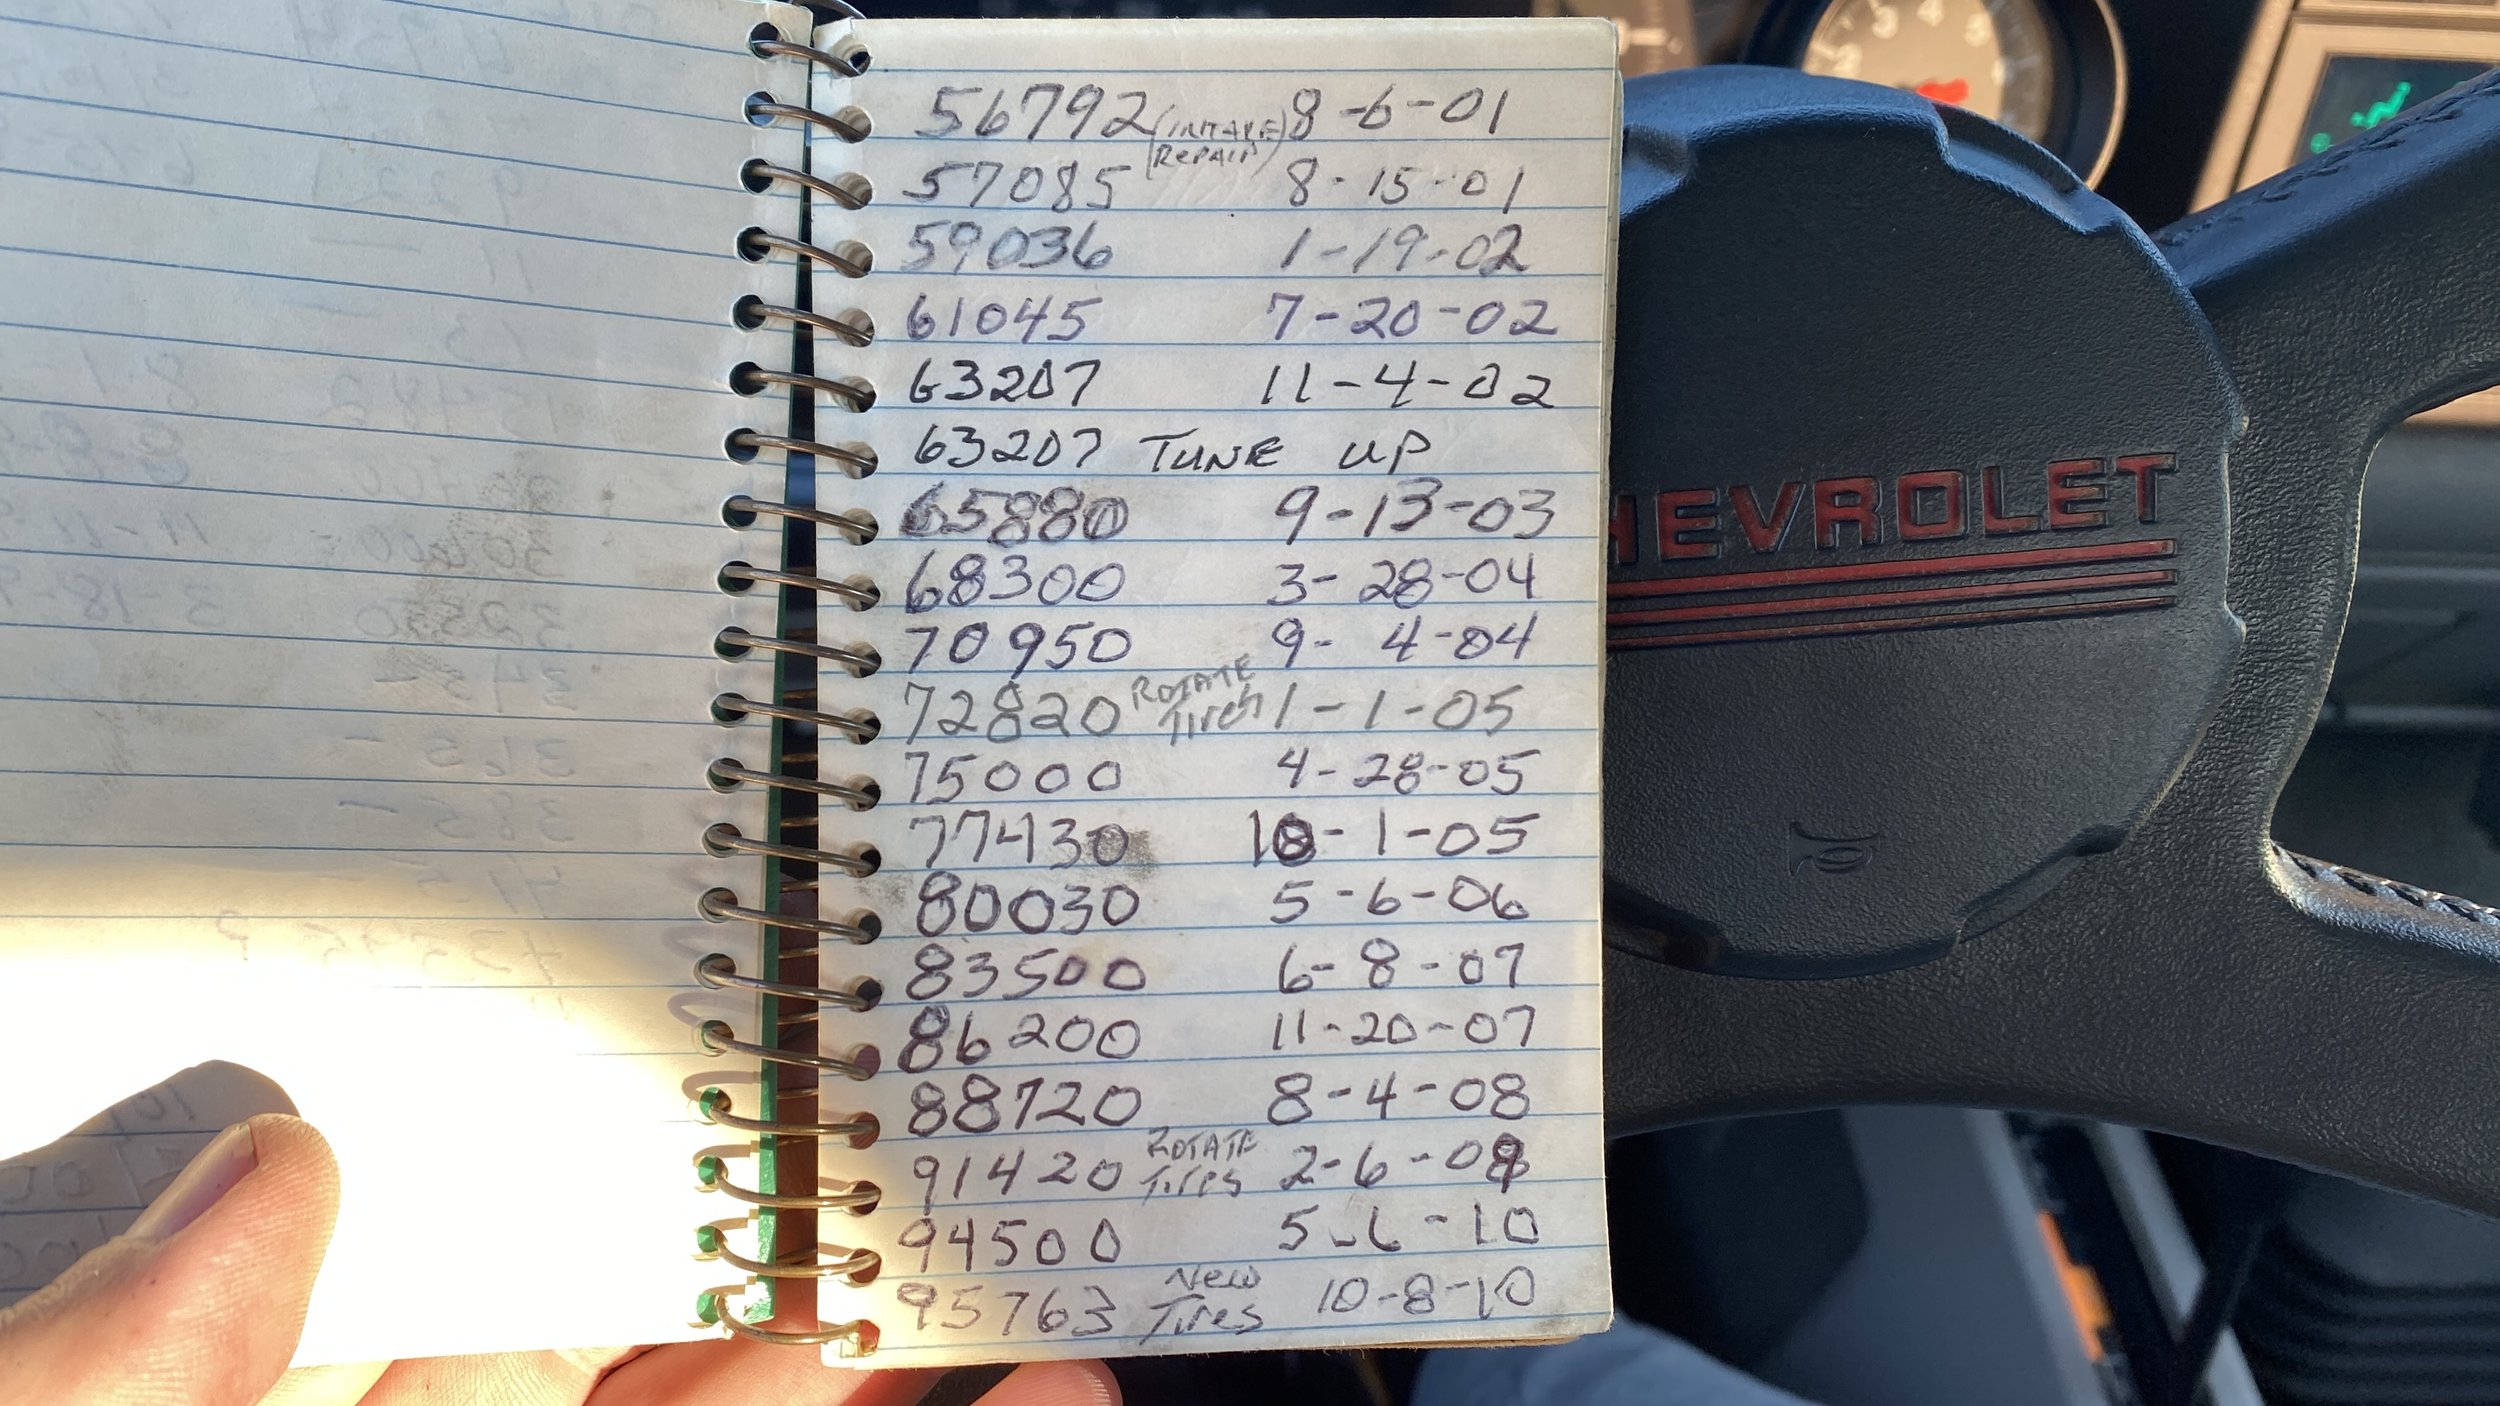 56792 (INTAKE REPAIR) 8-6-01
57085 8-15-01
59036 1-19-02
61045 7-20-02
63207 11-4-02
63207 TUNE UP
65880 9-13-03
68300 3-28-04
70950 9-4-04
72820 ROTATE Tires 1-1-05
75000 4-28-05
77430 10-1-05
80030 5-6-06
83500 6-8-07
86200 11-20-07
88720 8-4-08
91420 ROTATE Tires 2-6-09
94500 5-6-10
95763 New Tires 10-8-10
HEVROLET
3 4 5